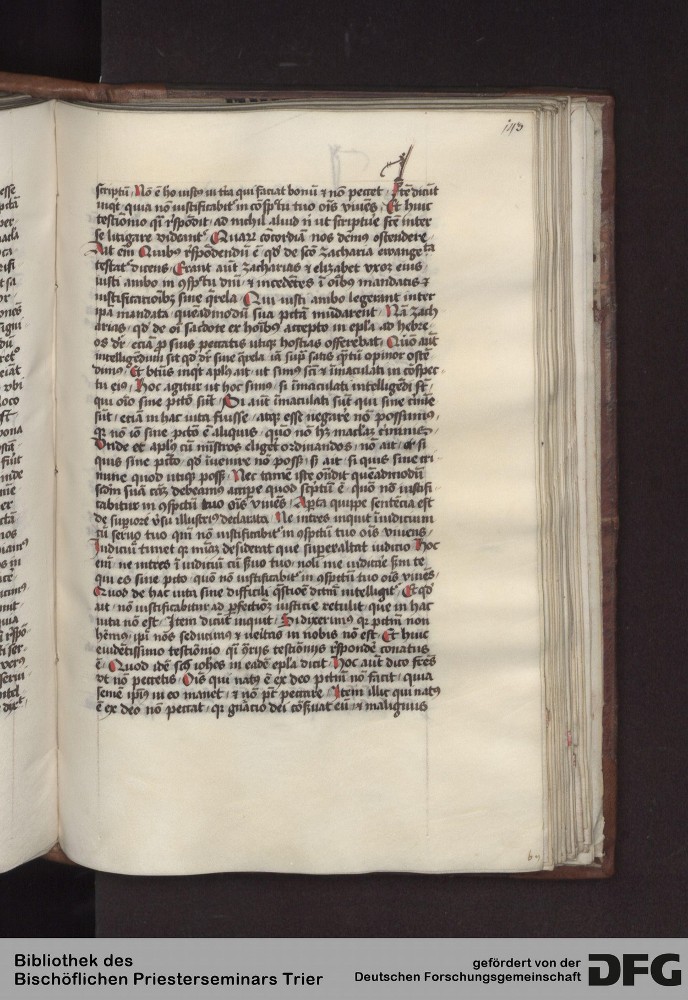 143
scriptū · Nō ē hō iustꝰ in t̄ra qui faciat bonū ⁊ nō peccet · Itē dicūt
inqt quia nō iustificabitᷓ in cōspc̄tu tuo oīs viuēs · Et huic
testīonio qͥ rn̄spōdit · ad nichil aliud nͥ ut scripture sc̄e inter
se litigare videant᷒ · Quare cōcordiā nos demꝰ ostendere
Ait em̄ Quibꝫ rn̄spōdendū ē qd̓ de sc̄o zacharia ewange
testat᷒ dicens · Erant aūt zacharias ⁊ elizabet vxor eius
iusti ambo in ꝯspc̄tu dn̄i · ⁊ incedētes ī oībꝫ mandatis ⁊
iustificatiōibꝫ sine q̄rela · Qui iusti ambo legerant inter
ipa mandata quēadmodū sua pctā mūdarent · Nā zach
arias · qd̓ de oī sacdote ex hoībꝫ accepto in epla ad hebre
os dr̄ · eciā p̲ suis peccatis utiqꝫ hostias offerebat · Quō aūt
intelligēdum sit qd̓ dr̄ sine q̄rela iā supͣ satis qͣtū opinor ostē
dimꝰ · Et btūs inqt aplꝰ ait · ut simꝰ sc̄i ⁊ īmaculati in cōspec
tu eiꝰ · Hoc agitur ut hoc simꝰ · si īmaculati intelligēdi st̄ ·
qui oīo sine pctō sūt · Si aūt īmaculati sūt qui sine cͥmīe
sūt · eciā in hac uita fuisse · atqꝫ esse negare nō possumꝰ ·
qꝛ nō iō sine pctō ē aliquis · quō nō hꝫ maclaꝫ cͥminis
Vnde et aplꝰ cū mīstros eliget ordinandos · nō ait · si
quis sine pctō · qd̓ īuenire nō possꝫ · si ait · si quis sine cri
mine quod utiqꝫ possꝫ · Nec tamē iste on̄dit quēadmodū
scdm̄ suā cāꝫ debeamꝰ accipe quod scptū ē · quō nō iustifi
cabitur in ꝯspctū tuo oīs viuēs · Aperta quippe sentēcia est
de supiore v̓su illustriꝰ declarata · Ne intres inquit ī iudicium
cū seruo tuo qm̄ nō iustificabit᷒ in ꝯspctū tuo oīs viuens ·
Iudiciū timet qꝛ miāꝫ desiderat que superaltat iudicio Hoc
em̄ · ne intres ī iudiciū cū s̄uo tuo · noli me iudicāe s̄m te
qui es sine pctō · quō nō iustificabit᷒ in ꝯspctū tuo oīs viuēs ·
Quod de hac uita sine difficili q̄stiōe dc̄m intelligit᷒ · Et qd̓
ait · nō iustificabitur ad ꝑfectiōꝫ iusticie retulit que in hac
uita nō est · Item dicūt inquit · Si dixerimꝰ qꝛ pctm̄ non
hēmꝰ · ipī nōs seducimꝰ ⁊ veītas in nobis nō est · Et huic
euidētissimo testiōnio qͥ ꝯͣrijs testiōnijs rn̄spondē conatus
ē · Quod idē scs̄ iohēs in eadē epla dicit · Hoc aūt dico fr̄es
vt nō peccetis · Oīs qui natꝰ ē ex deo pctm̄ nō facit · quia
semē ipīꝰ in eo manet · ⁊ nō pt̄ peccare · Item illic qui natꝰ
ē ex deo nō peccat · qꝛ gn̄acio dei cōs̄uat eū · ⁊ malignus
Bibliothek des
Bischöflichen Priesterseminars Trier
gefördert von der
Deutschen Forschungsgemeinschaft
DFG